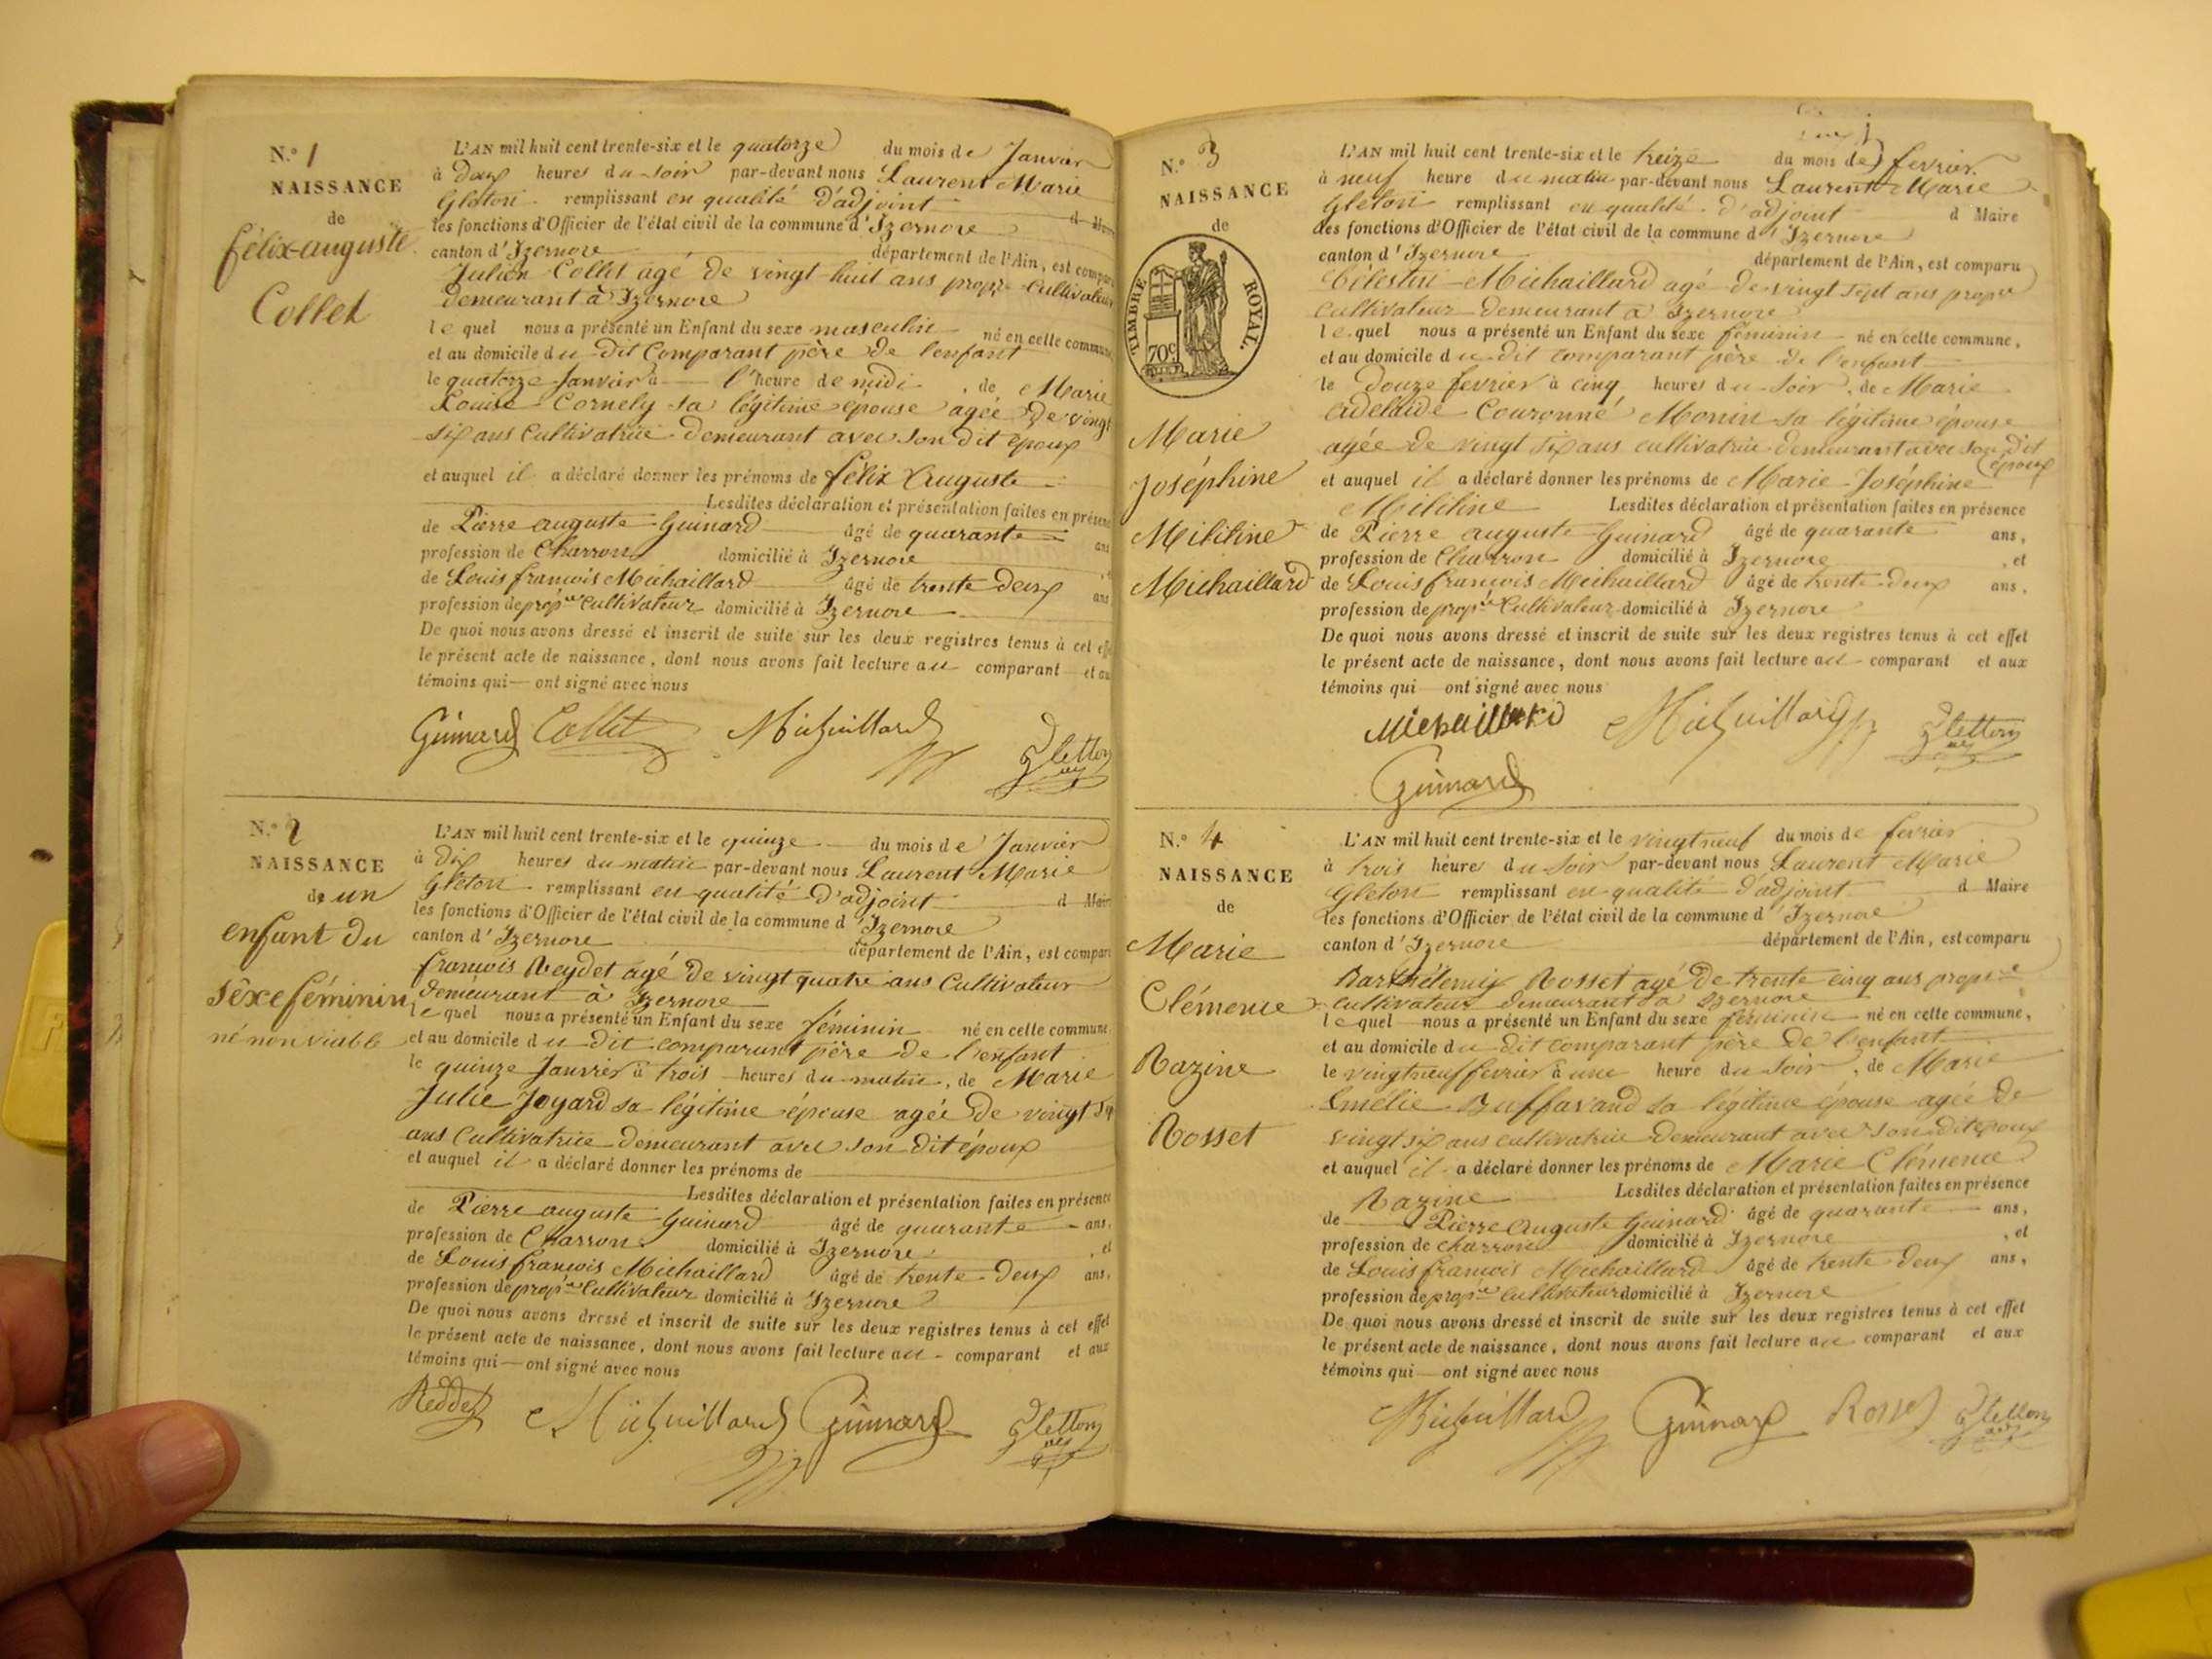 N.º 1
NAISSANCE
de
félix-auguste
Collet
L'AN mil huit cent trente-six et le quatorze du mois de Janvier
à deux heures du soir par-devant nous Laurent Marie
Gleton remplissant en qualité d'adjoint d Maire
les fonctions d'Officier de l'état civil de la commune d'Izernore
canton d'Izernore département de l'Ain, est comparu
Julien Collet agé de vingt huit ans propre cultivateur
demeurant à Izernore
lequel nous a présenté un Enfant du sexe masculin né en cette commune
et au domicile du dit Comparant père de l'enfant
le quatorze Janvier à l'heure de midi, de Marie
Louise Cornely sa légitime épouse agée de vingt
six ans Cultivatrice demeurant avec son dit époux
et auquel il a déclaré donner les prénoms de félix Auguste
Lesdites déclaration et présentation faites en présence
de Pierre auguste Guinard âgé de quarante ans
profession de Charron domicilié à Izernore, et
de Louis françois Michaillard âgé de trente deux ans
profession de propre Cultivateur domicilié à Izernore
De quoi nous avons dressé et inscrit de suite sur les deux registres tenus à cet effet
le présent acte de naissance, dont nous avons fait lecture au comparant et aux
témoins qui ont signé avec nous
Guinard Collet Michaillard Gletton
N.º 2
NAISSANCE
de un
enfant du
sexe féminin
né non viable
L'AN mil huit cent trente-six et le quinze du mois de Janvier
à dix heures du matin par-devant nous Laurent Marie
Gleton remplissant en qualité d'adjoint d Maire
les fonctions d'Officier de l'état civil de la commune d'Izernore
canton d'Izernore département de l'Ain, est comparu
françois Reydet agé de vingt quatre ans Cultivateur
demeurant à Izernore
lequel nous a présenté un Enfant du sexe féminin né en cette commune
et au domicile du dit comparant père de l'enfant
le quinze Janvier à trois heures du matin, de Marie
Julie Joyard sa légitime épouse agée de vingt six
ans Cultivatrice demeurant avec son dit époux
et auquel il a déclaré donner les prénoms de
Lesdites déclaration et présentation faites en présence
de Pierre auguste Guinard âgé de quarante ans,
profession de Charron domicilié à Izernore, et
de Louis françois Michaillard âgé de trente deux ans,
profession de propre Cultivateur domicilié à Izernore
De quoi nous avons dressé et inscrit de suite sur les deux registres tenus à cet effet
le présent acte de naissance, dont nous avons fait lecture au comparant et aux
témoins qui ont signé avec nous
Reddet Michaillard Guinard Gletton
N.º 3
NAISSANCE
de
TIMBRE ROYAL.
70c
Marie
Joséphine
Mélitine
Michaillard
L'AN mil huit cent trente-six et le treize du mois de fevrier
à neuf heure du matin par-devant nous Laurent Marie
Gleton remplissant en qualité d'adjoint d Maire
les fonctions d'Officier de l'état civil de la commune d'Izernore
canton d'Izernore département de l'Ain, est comparu
Célestin Michaillard agé de vingt sept ans propre
cultivateur demeurant à Izernore
lequel nous a présenté un Enfant du sexe féminin né en cette commune,
et au domicile du dit comparant père de l'enfant
le douze fevrier à cinq heures du soir, de Marie
adelaide Couronné Monin sa légitime épouse
agée de vingt six ans cultivatrice demeurant avec son dit
époux
et auquel il a déclaré donner les prénoms de Marie Joséphine
Mélitine Lesdites déclaration et présentation faites en présence
de Pierre auguste Guinard âgé de quarante ans,
profession de Charron domicilié à Izernore, et
de Louis françois Michaillard âgé de trente deux ans,
profession de propre Cultivateur domicilié à Izernore
De quoi nous avons dressé et inscrit de suite sur les deux registres tenus à cet effet
le présent acte de naissance, dont nous avons fait lecture au comparant et aux
témoins qui ont signé avec nous
Michaillard Michaillard Gletton
Guinard
N.º 4
NAISSANCE
de
Marie
Clémence
Razine
Rosset
L'AN mil huit cent trente-six et le vingt neuf du mois de fevrier
à trois heures du soir par-devant nous Laurent Marie
Gleton remplissant en qualité d'adjoint d Maire
les fonctions d'Officier de l'état civil de la commune d'Izernore
canton d'Izernore département de l'Ain, est comparu
Barthélemy Rosset agé de trente cinq ans propre
cultivateur demeurant à Izernore
lequel nous a présenté un Enfant du sexe féminin né en cette commune,
et au domicile du dit comparant père de l'enfant
le vingt neuf fevrier à une heure du soir, de Marie
Emélie Buffavand sa légitime épouse agée de
vingt six ans cultivatrice demeurant avec son dit époux
et auquel il a déclaré donner les prénoms de Marie Clémence
Razine Lesdites déclaration et présentation faites en présence
de Pierre Auguste Guinard âgé de quarante ans,
profession de charron domicilié à Izernore, et
de Louis françois Michaillard âgé de trente deux ans,
profession de propre Cultivateur domicilié à Izernore
De quoi nous avons dressé et inscrit de suite sur les deux registres tenus à cet effet
le présent acte de naissance, dont nous avons fait lecture au comparant et aux
témoins qui ont signé avec nous
Michaillard Guinard Rosset Gletton